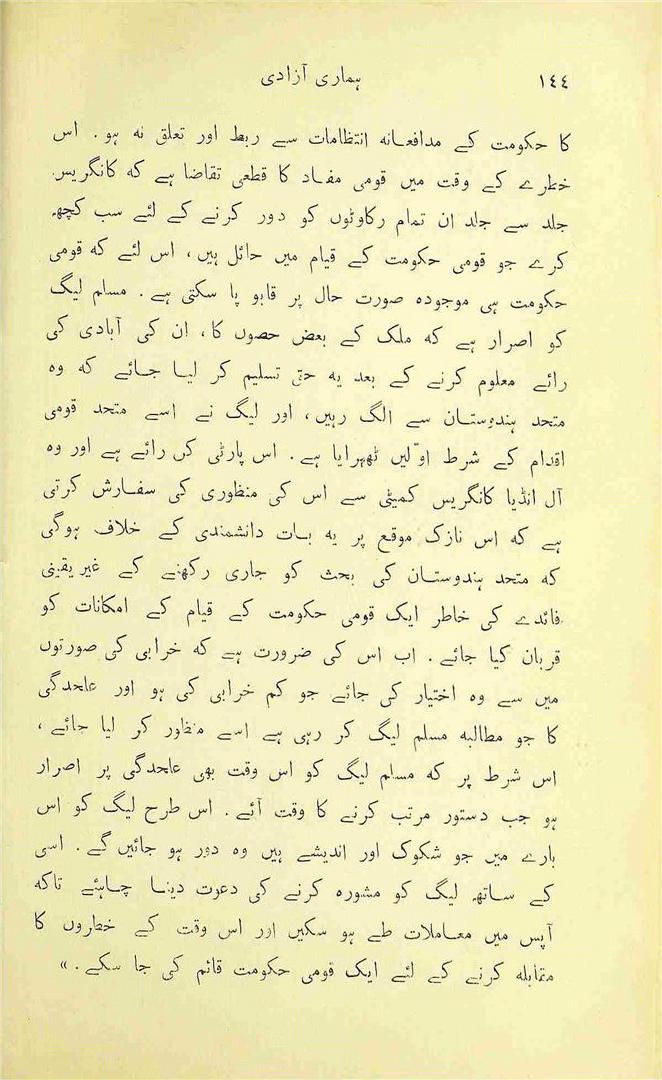 ١٤٤ ہماری آزادی
کا حکومت کے مدافعانہ انتظامات سے ربط اور تعلق نہ ہو۔ اس
خطرے کے وقت میں قومی مفاد کا قطعی تقاضا ہے کہ کانگریس
جلد سے جلد ان تمام رکاوٹوں کو دور کرنے کے لئے سب کچھ
کرے جو قومی حکومت کے قیام میں حائل ہیں، اس لئے کہ قومی
حکومت ہی موجودہ صورت حال پر قابو پا سکتی ہے۔ مسلم لیگ
کو اصرار ہے کہ ملک کے بعض حصوں کا، ان کی آبادی کی
رائے معلوم کرنے کے بعد یہ حق تسلیم کر لیا جائے کہ وہ
متحد ہندوستان سے الگ رہیں، اور لیگ نے اسے متحد قومی
اقدام کے شرط اوّلیں ٹھہرایا ہے۔ اس پارٹی کی رائے ہے اور وہ
آل انڈیا کانگریس کمیٹی سے اس کی منظوری کی سفارش کرتی
ہے کہ اس نازک موقع پر یہ بات دانشمندی کے خلاف ہوگی
کہ متحد ہندوستان کی بحث کو جاری رکھنے کے غیر یقینی
فائدے کی خاطر ایک قومی حکومت کے قیام کے امکانات کو
قربان کیا جائے۔ اب اس کی ضرورت ہے کہ خرابی کی صورتوں
میں سے وہ اختیار کی جائے جو کم خرابی کی ہو اور علحدگی
کا جو مطالبہ مسلم لیگ کر رہی ہے اسے منظور کر لیا جائے،
اس شرط پر کہ مسلم لیگ کو اس وقت بھی علحدگی پر اصرار
ہو جب دستور مرتب کرنے کا وقت آئے۔ اس طرح لیگ کو اس
بارے میں جو شکوک اور اندیشے ہیں وہ دور ہو جائیں گے۔ اسی
کے ساتھ لیگ کو مشورہ کرنے کی دعوت دینا چاہئے تاکہ
آپس میں معاملات طے ہو سکیں اور اس وقت کے خطروں کا
مقابلہ کرنے کے لئے ایک قومی حکومت قائم کی جا سکے۔»